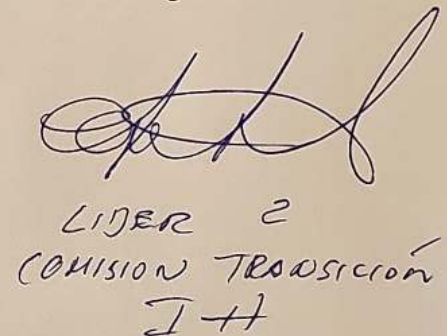 LIDER 2
COMISION TRANSICIÓN
I-H